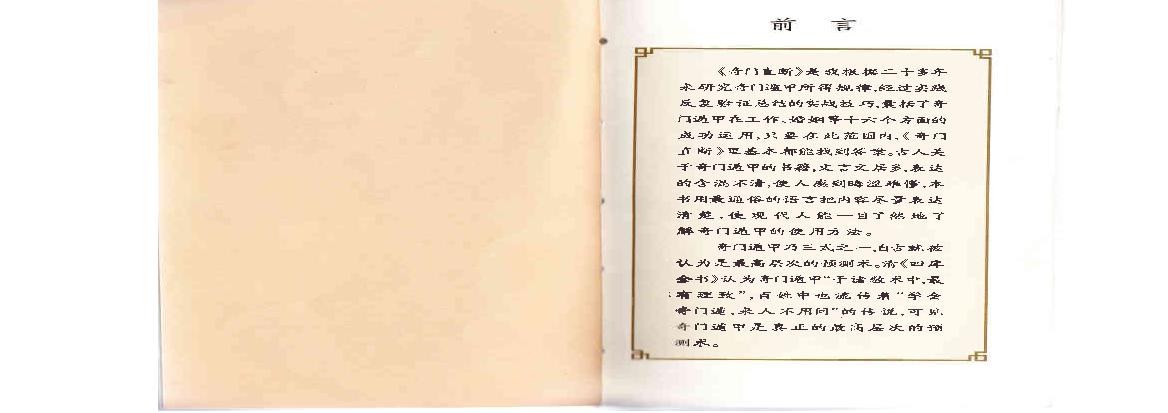 前 言
《奇门直断》是我根据二十多年
来研究奇门遁甲所得规律,经过实践
反复验证总结的实战技巧,囊括了奇
门遁甲在工作、婚姻等十六个方面的
成功运用,只要在此范围内,《奇门
直断》里基本都能找到答案。古人关
于奇门遁甲的书籍,文言文居多,表达
的含混不清,使人感到晦涩难懂,本
书用最通俗的语言把内容尽量表达
清楚,使现代人能一目了然地了
解奇门遁甲的使用方法。
奇门遁甲乃三式之一,自古就被
认为是最高层次的预测术。清《四库
全书》认为奇门遁甲“于诸数术中,最
有理致”,百姓中也流传着“学会
奇门遁,来人不用问”的传说,可见
奇门遁甲是真正的最高层次的预
测术。